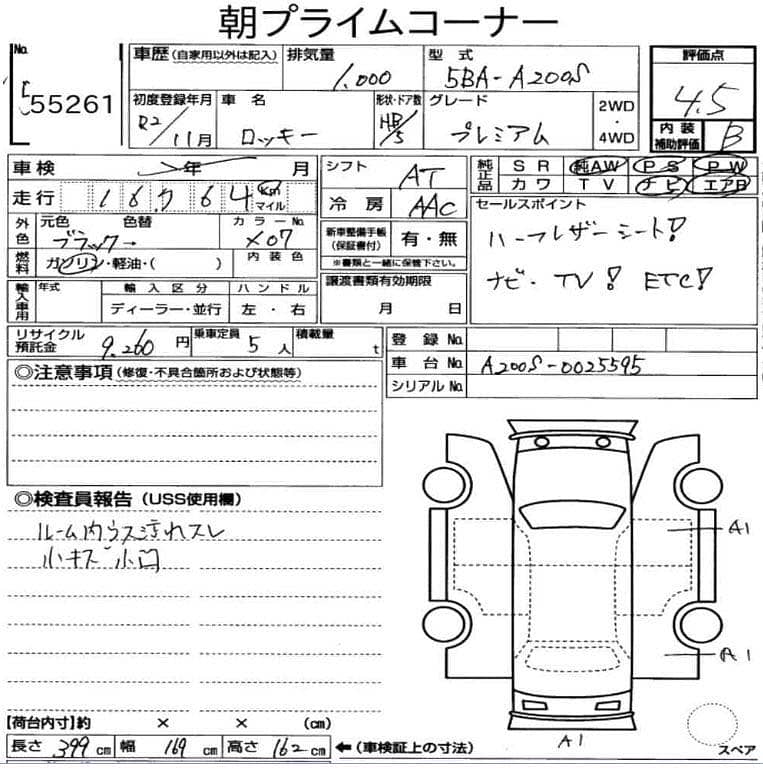 朝プライムコーナー
No. 55261
車歴 (自家用以外は記入) 排気量 1.000 型式 5BA-A200S 評価点 4.5
初度登録年月 R2/11月 車名 ロッキー 形状・ドア数 HB/5 グレード プレミアム 2WD・4WD 内装補助評価 B
車検 年 月 シフト AT 純正品 SR 純AW PS PW
カワ TV ナビ エアB
走行 18,764 km マイル 冷房 AAC
セールスポイント
外色 元色 色替 カラーNo.
ブラック→ X07
新車整備手帳(保証書付) 有・無
ハーフレザーシート!
燃料 ガソリン・軽油・( ) 内装色 ※書類と一緒に保管下さい。
ナビ・TV! ETC!
輸入車用 年式 輸入区分 ハンドル 譲渡書類有効期限
ディーラー・並行 左・右 月 日
リサイクル預託金 9.260円 乗車定員 5人 積載量 t 登録No.
車台No. A200S-0025595
シリアルNo.
◎注意事項(修復・不具合箇所および状態等)
◎検査員報告(USS使用欄)
ルーム内ウス汚れスレ
小キズ小凹
A1
A1
A1
スペア
【荷台内寸】約 × × (cm)
長さ 399cm 幅 169cm 高さ 162cm ←(車検証上の寸法)